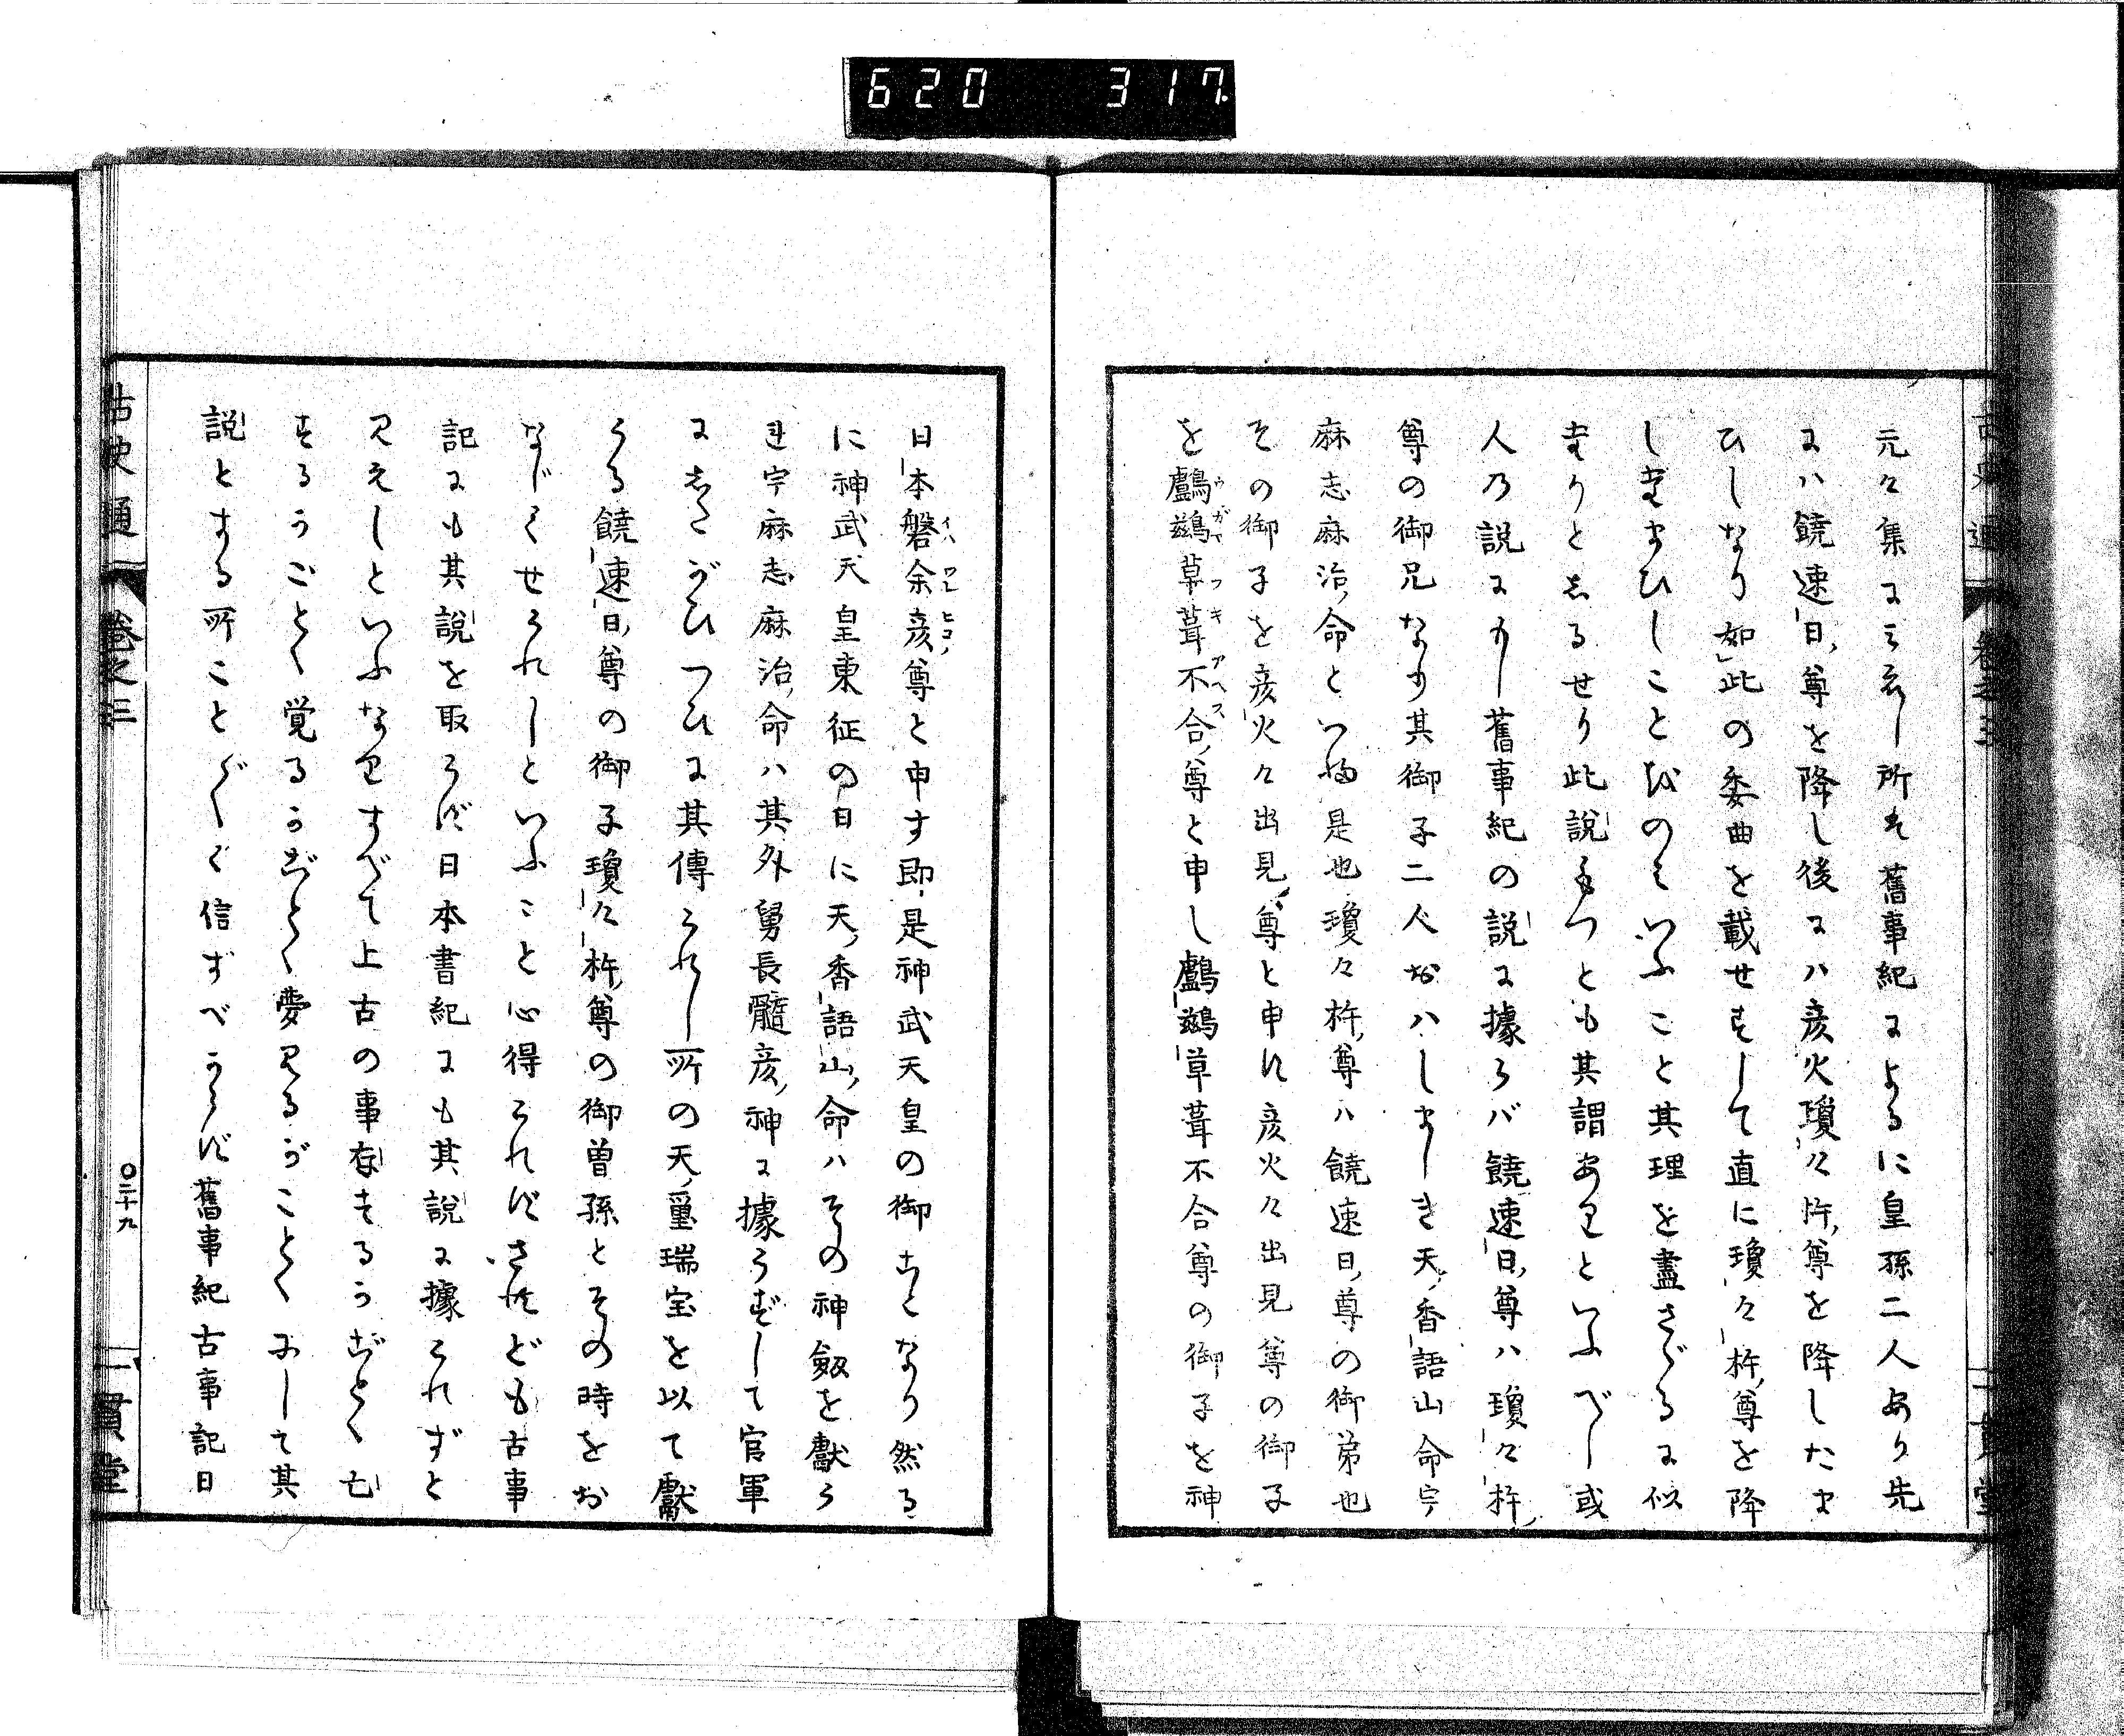 620 317
古史通 卷之三 一貫堂
元々集にみえし所は舊事紀によるに皇孫二人あり先
には饒速日尊を降し後には彦火瓊々杵尊を降したま
ひしなり如此の委曲を載せずして直に瓊々杵尊を降
しまひしことをのみいふこと其理を盡さゞるに似
たりとしるせり此説もつとも其謂ありといふべし或
人の説に舊事紀の説に據らば饒速日尊ハ瓊々杵
尊の御兄なり其御子二人おハしましき天香語山命宇
麻志麻治命といふ是也瓊々杵尊ハ饒速日尊の御弟也
その御子を彦火々出見尊と申す彦火々出見尊の御子
を鸕鷀草葺不合尊と申し鸕鷀草葺不合尊の御子を神
ウガヤフキアヘス
日本磐余彦尊と申す即是神武天皇の御ことなり然る
イハワレヒコノ
に神武天皇東征の日に天香語山命ハその神劔を獻ら
れ宇麻志麻治命ハ其外舅長髓彦神に據らずして官軍
にしたがひつひに其傳られし所の天璽瑞宝を以て獻
らる饒速日尊の御子瓊々杵尊の御曽孫とその時をお
なじくせられしといふこと心得られずされども古事
記にも其説を取らず日本書紀にも其説に據られずと
見えしといふなりすべて上古の事存するがごとく亡
するがごとく覚るがごとく夢見るがごとくにして其
説とする所ことごとく信ずべからず舊事紀古事記日
古史通 卷之三 〇三十九 一貫堂